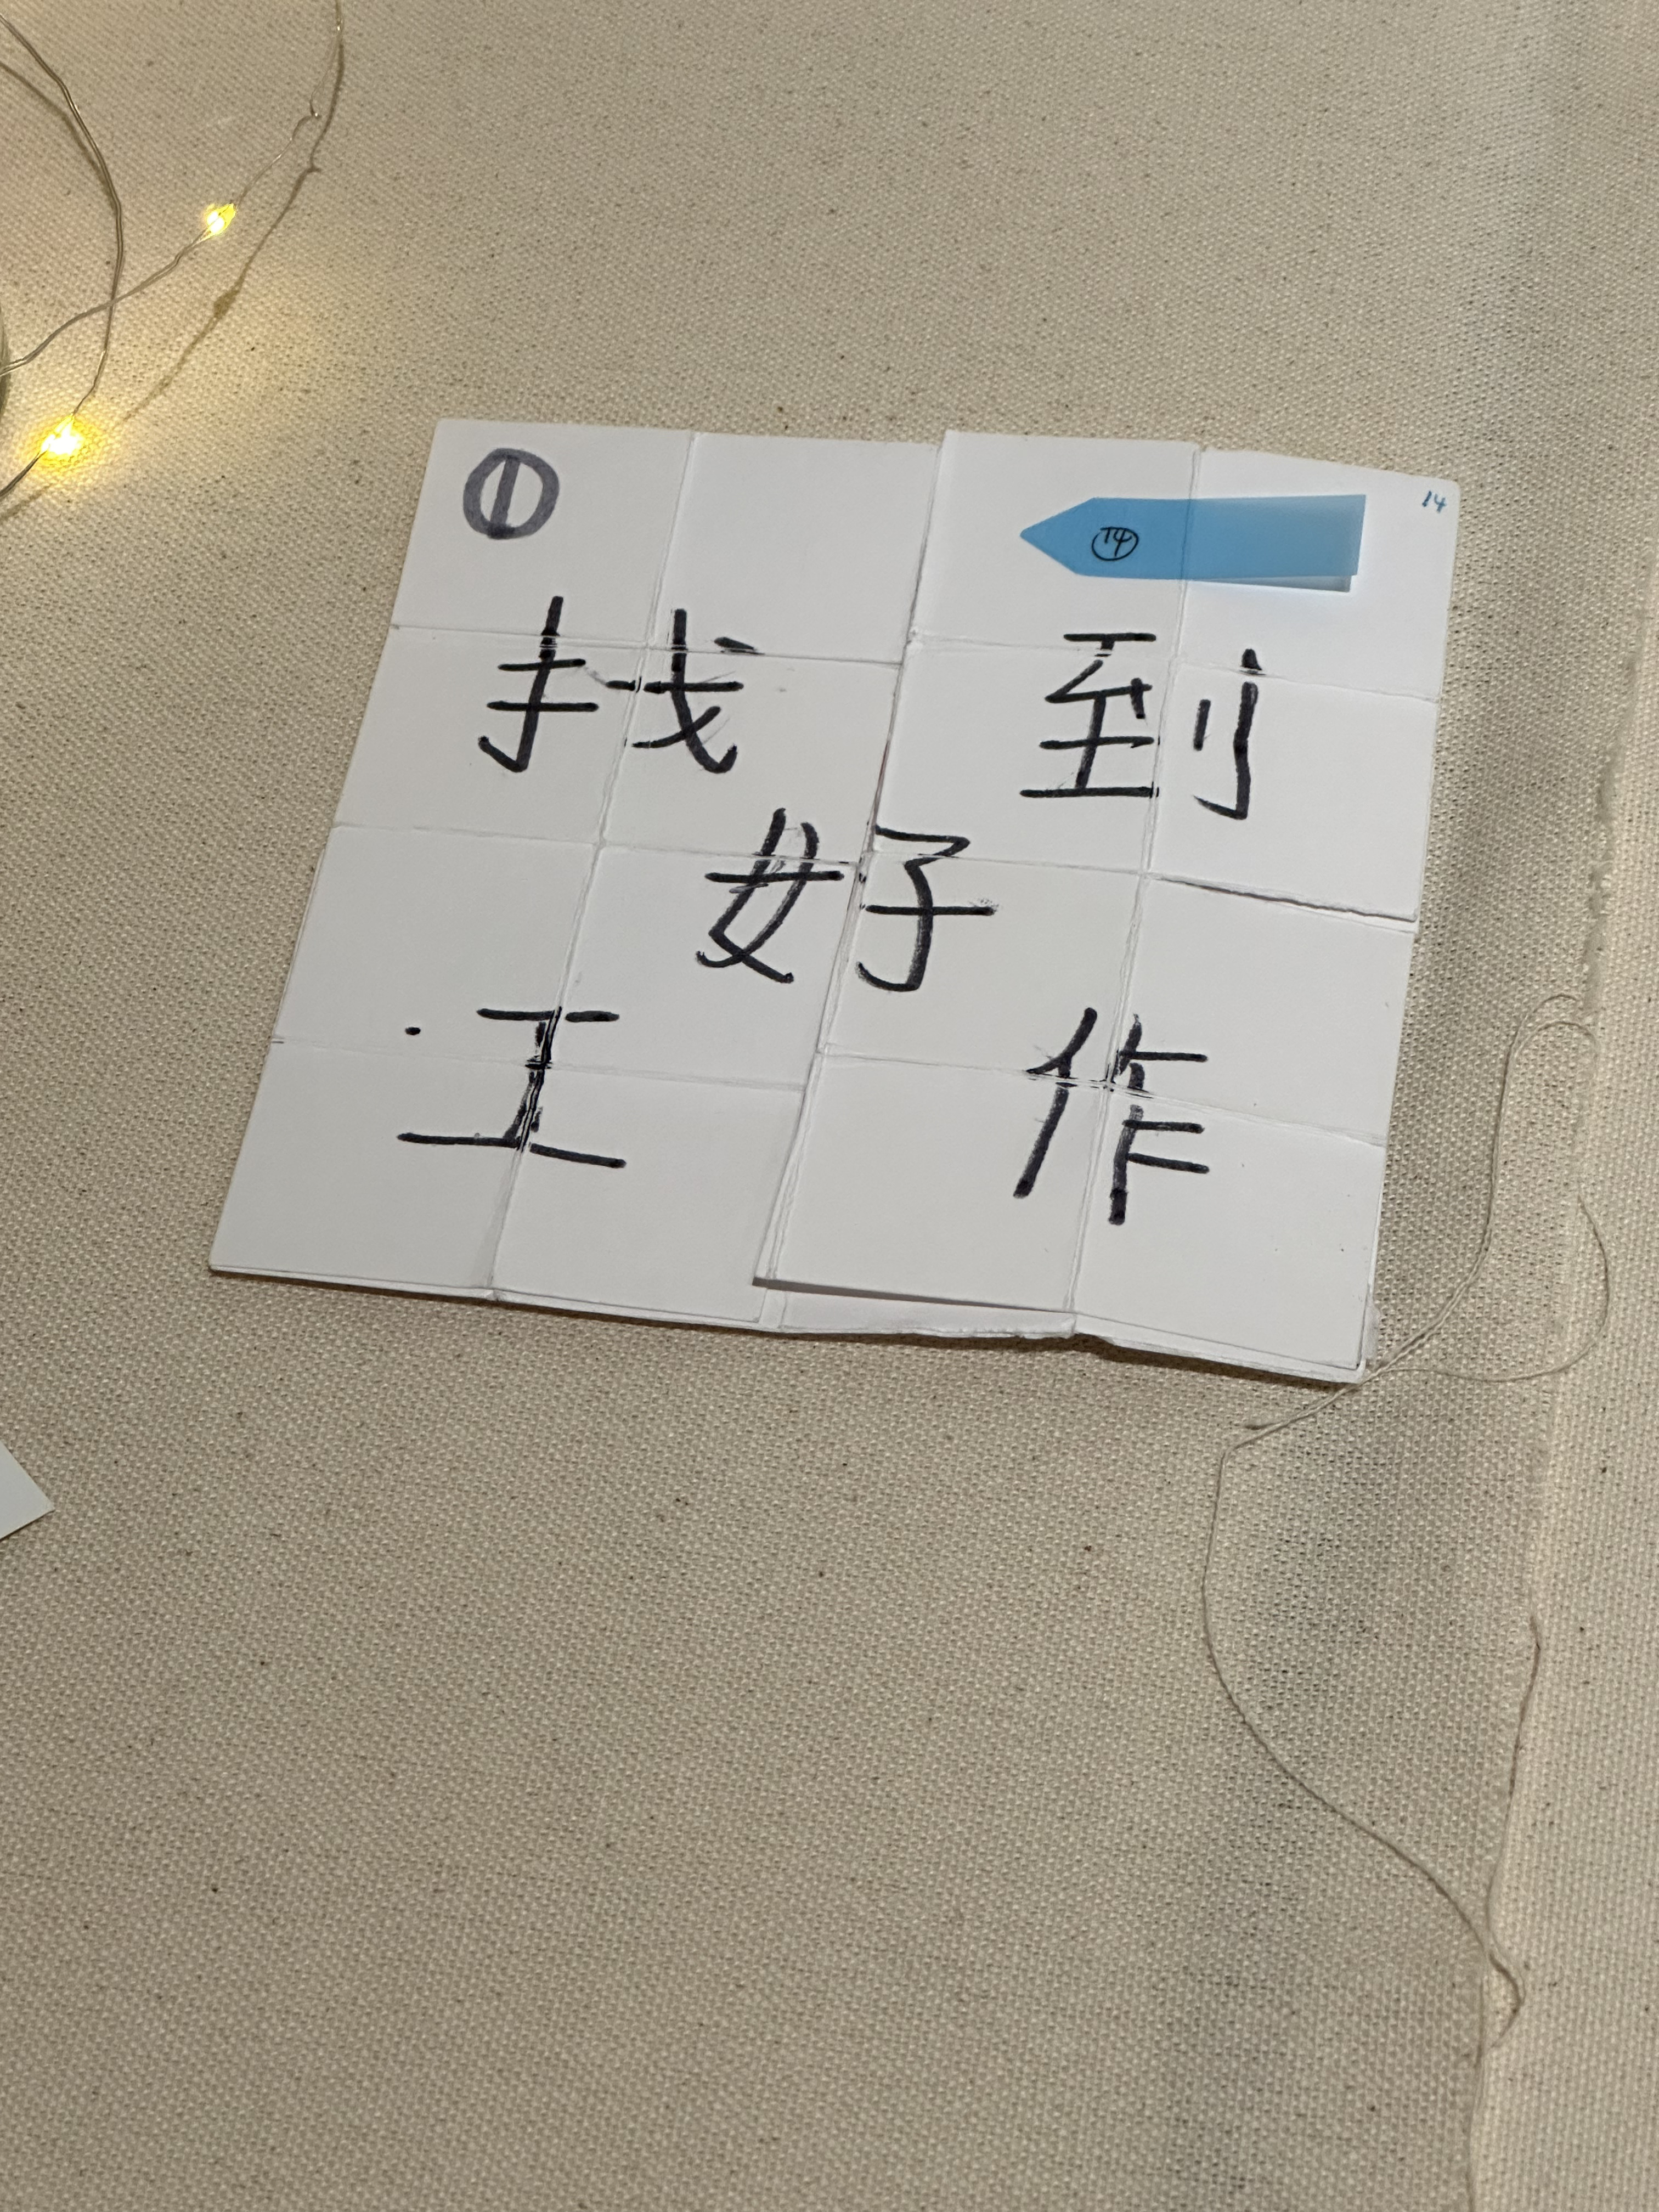 ①
⑭ 14
找 到
好
工 作